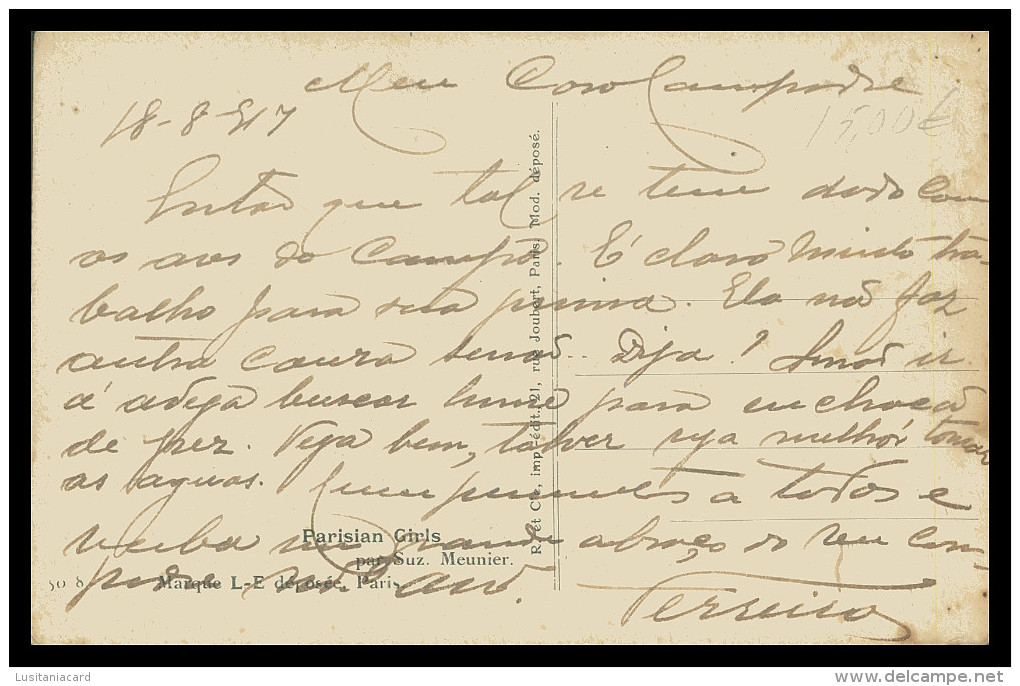 Meu Caro Compadre
18-8-917
15,00€
Então que tal se tem dado com
os ares do Campo. É claro muito tra-
balho para sua prima. Ela não faz
outra cousa senão.. Diga? Senão ir
á adega buscar para
de pez. Veja bem, talvez seja melhor tomar
as aguas. Cumprimentos a todos e
um grande abraço do seu com-
padre
Ferreira
R. et Cie, imp.-édit., 21, rue Joubert, Paris, Mod. déposé.
Parisian Girls
par Suz. Meunier.
Marque L-E déposée. Paris
Lusitaniacard
delcampe.net